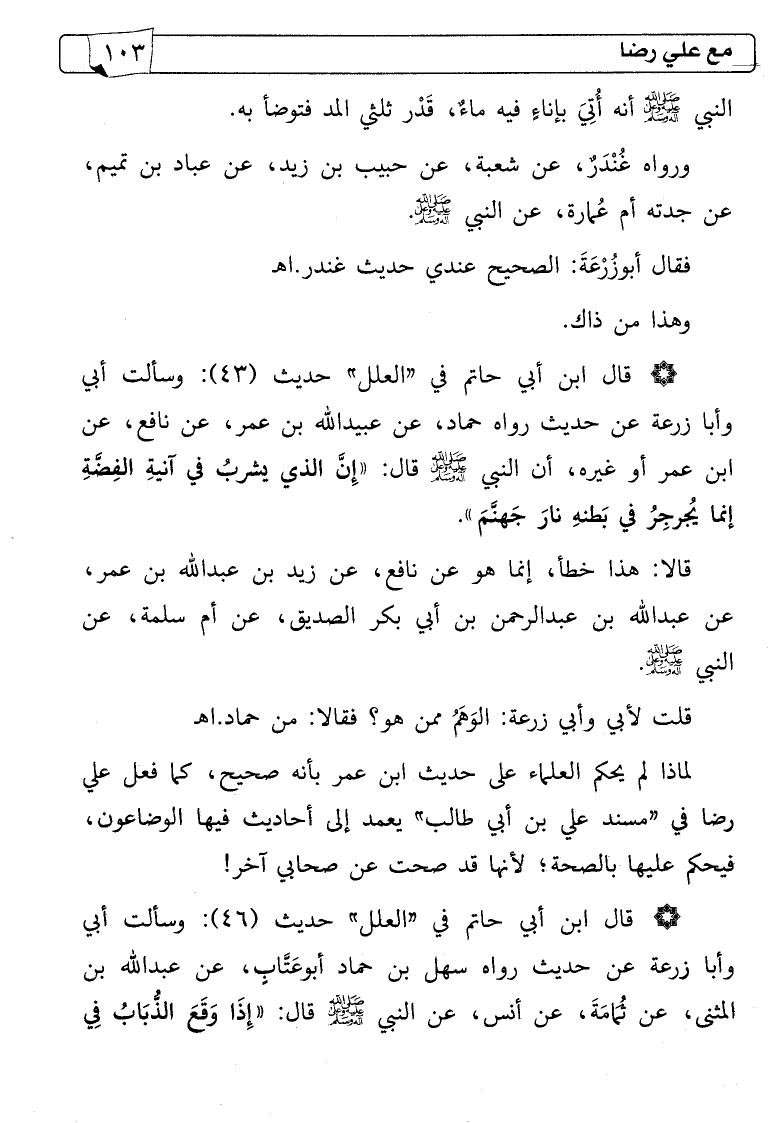 مع علي رضا ١٠٣
النبي ﷺ أنه أُتِيَ بإناءٍ فيه ماءٌ، قَدْر ثلثي المد فتوضأ به.
ورواه غُنْدَرٌ، عن شعبة، عن حبيب بن زيد، عن عباد بن تميم،
عن جدته أم عُمارة، عن النبي ﷺ.
فقال أبوزُرْعَةَ: الصحيح عندي حديث غندر.اهـ
وهذا من ذاك.
۞ قال ابن أبي حاتم في "العلل" حديث (٤٣): وسألت أبي
وأبا زرعة عن حديث رواه حماد، عن عبيدالله بن عمر، عن نافع، عن
ابن عمر أو غيره، أن النبي ﷺ قال: «إنَّ الذي يشربُ في آنيةِ الفِضَّةِ
إنما يُجرجِرُ في بَطنهِ نارَ جَهنَّمَ».
قالا: هذا خطأ، إنما هو عن نافع، عن زيد بن عبدالله بن عمر،
عن عبدالله بن عبدالرحمن بن أبي بكر الصديق، عن أم سلمة، عن
النبي ﷺ.
قلت لأبي وأبي زرعة: الوَهَمُ ممن هو؟ فقالا: من حماد.اهـ
لماذا لم يحكم العلماء على حديث ابن عمر بأنه صحيح، كما فعل علي
رضا في "مسند علي بن أبي طالب" يعمد إلى أحاديث فيها الوضاعون،
فيحكم عليها بالصحة؛ لأنها قد صحت عن صحابي آخر!
۞ قال ابن أبي حاتم في "العلل" حديث (٤٦): وسألت أبي
وأبا زرعة عن حديث رواه سهل بن حماد أبوعَتَّابٍ، عن عبدالله بن
المثنى، عن ثُمَامَةَ، عن أنس، عن النبي ﷺ قال: «إِذَا وَقَعَ الذُّبَابُ فِي